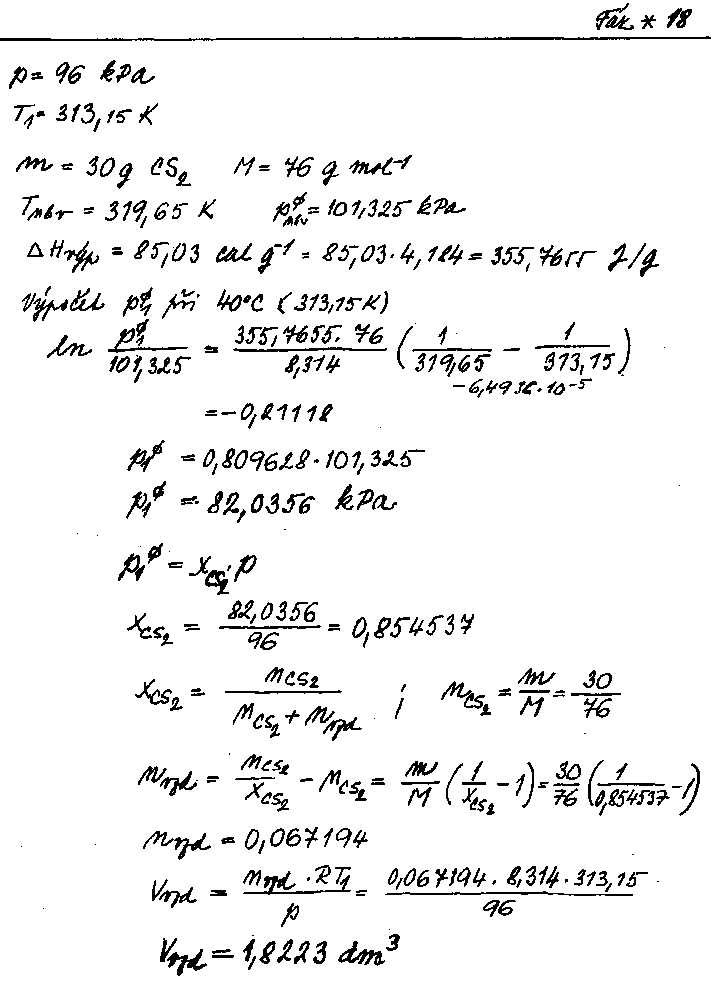 Fáz * 18
p = 96 kPa
T₁ = 313,15 K
m = 30 g CS₂ M = 76 g mol⁻¹
Tₙbᵥ = 319,65 K p^ø_nbv = 101,325 kPa
ΔHvýp = 85,03 cal g⁻¹ = 85,03·4,184 = 355,7655 J/g
Výpočet p₁^ø při 40°C (313,15 K)
ln p₁^ø/101,325 = 355,7655·76/8,314 (1/319,65 − 1/313,15)
−6,4936·10⁻⁵
= −0,21118
p₁^ø = 0,809628·101,325
p₁^ø = 82,0356 kPa
p₁^ø = x_CS₂·p
x_CS₂ = 82,0356/96 = 0,854537
x_CS₂ = n_CS₂/(n_CS₂ + n_vzd) ; n_CS₂ = m/M = 30/76
n_vzd = n_CS₂/x_CS₂ − n_CS₂ = m/M (1/x_CS₂ − 1) = 30/76 (1/0,854537 − 1)
n_vzd = 0,067194
V_vzd = n_vzd·RT₁/p = 0,067194·8,314·313,15/96
V_vzd = 1,8223 dm³